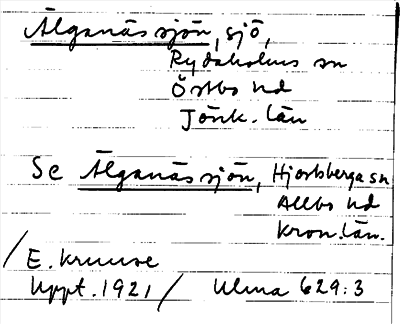 Älganässjön, sjö,
Rydaholms sn
Östbo hd
Jönk. län
Se Älganässjön, Hjortsberga sn
Allbo hd
Kron. län.
/ E. Kruuse
Uppt. 1921 / Ulma 629:3